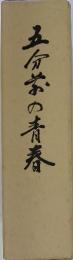 五分前の青春